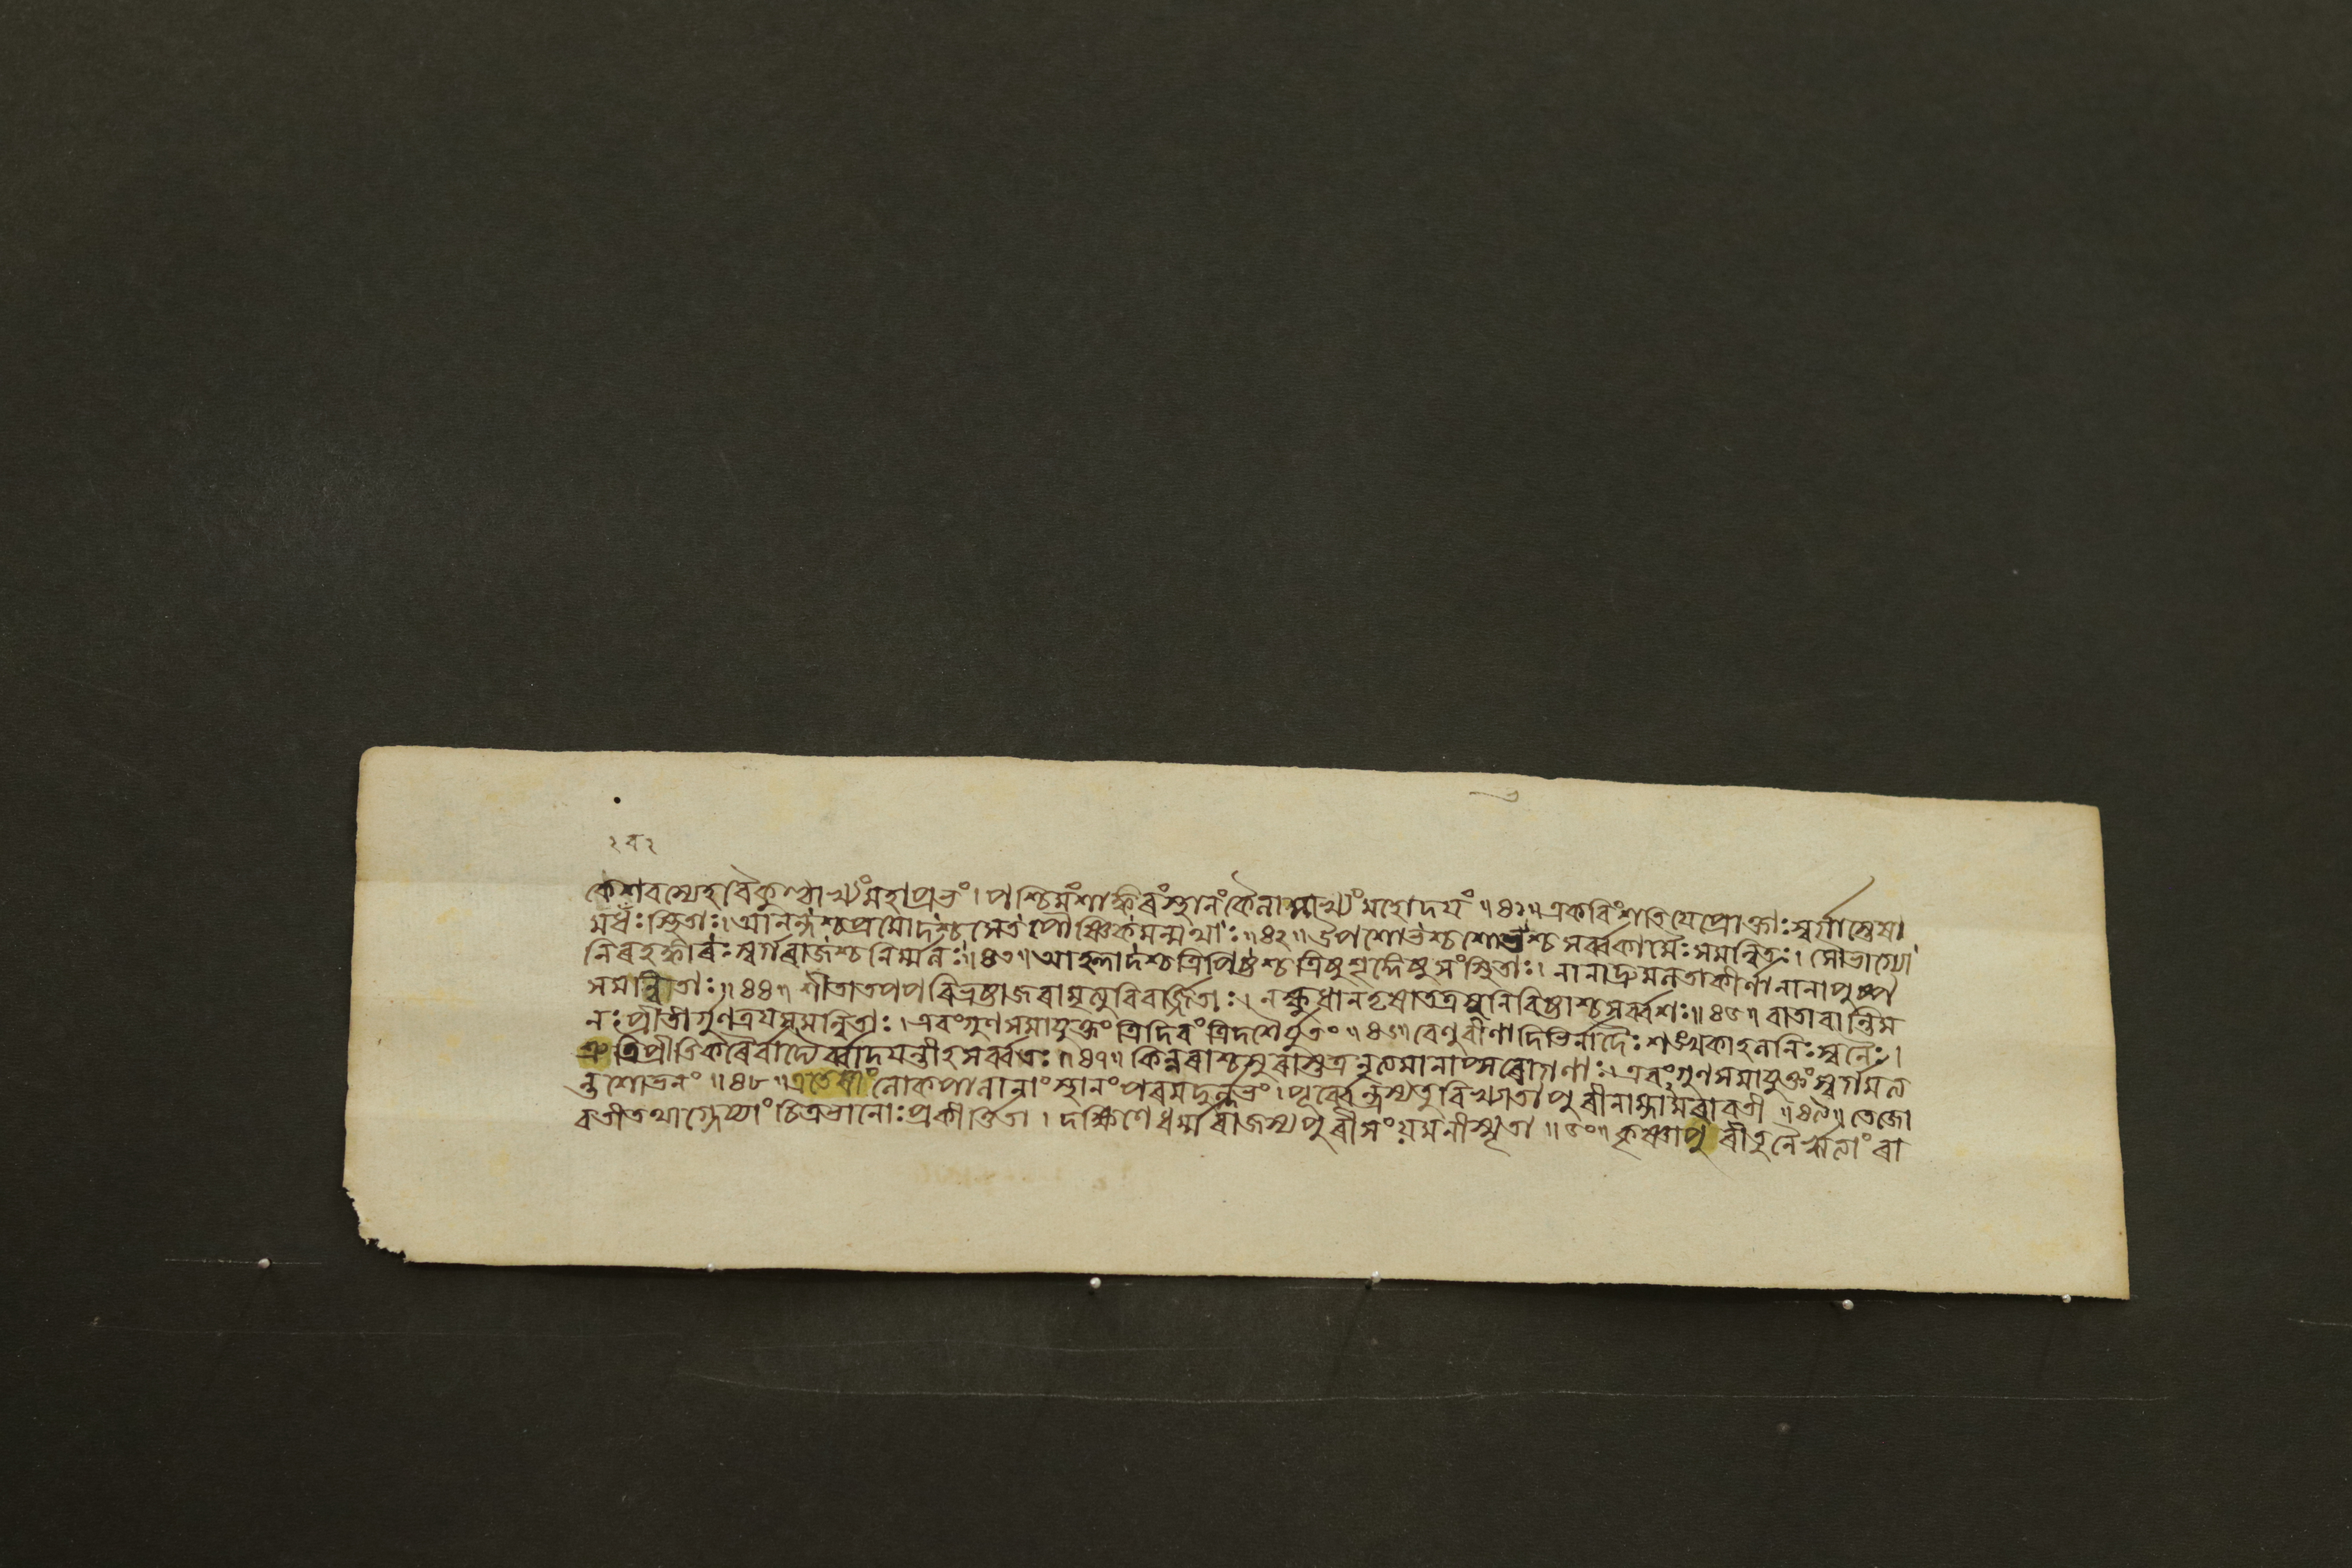 ২ব২
কেশবস্যেহ বৈকুণ্ঠাখ্যং মহাপ্রভং । পশ্চিমং শাঙ্কৰং স্থানং কৈলাসাখ্যং মহোদয়ং ॥ ৪১ ॥ একবিংশতি যে প্রোক্তাঃ স্বর্গাস্তেষা
মধঃ স্থিতাঃ । আনন্দশ্চ প্রমোদশ্চ পৌষ্টিকমন্মথাঃ ॥ ৪২ ॥ উপশোভশ্চ শোভশ্চ সর্ব্বকামৈঃ সমন্বিতঃ । সৌভাগ্যো
নিৰহঙ্কাৰঃ স্বর্গৰাজশ্চ নির্ম্মলঃ ॥ ৪৩ ॥ আহ্লাদশ্চ ত্রিপিষ্টশ্চ ত্রিষু শৃঙ্গেষু সংস্থিতাঃ । নানাদ্রুমলতাকীর্ণা নানাপুষ্প
সমন্বিতাঃ ॥ ৪৪ ॥ শীতাতপপৰিভ্রষ্টা জৰামৃত্যুবিবর্জ্জিতাঃ । ন ক্ষুধা ন তৃষা তত্র নিবিষ্টাশ্চ সর্ব্বশঃ ॥ ৪৫ ॥ বাতা বান্তি ম
নঃপ্রীতী গুণত্রয়সমন্বিতাঃ । এবং গুণসমাযুক্তং ত্রিদিবং ত্রিদশৈর্যুতং ॥ ৪৬ ॥ বেণুবীণাদিভির্নাদৈঃ শঙ্খকাহলনিঃস্বনৈঃ ।
প্রীতিকৰৈর্বাদ্যৈর্ব্বাদয়ন্তীহ সর্ব্বতঃ ॥ ৪৭ ॥ কিন্নৰাশ্চ সুৰাস্তত্র নৃত্যমানাপ্সৰোগণাঃ । এবং গুণসমাযুক্তং স্বর্গমত্য
ন্তশোভনং ॥ ৪৮ ॥ এতেষাং লোকপালানাং স্থানং পৰমদুর্ল্লভং । পূর্ব্বেন্দ্রস্য তু বিখ্যাতা পুৰী নাম্নামৰাবতী ॥ ৪৯ ॥ তেজো
বতী তথাগ্নেয্যাং চিত্রভানোঃ প্রকীর্ত্তিতা । দক্ষিণে ধর্ম্মৰাজস্য পুৰী সংয়মনী স্মৃতা ॥ ৫০ ॥ কৃষ্ণা পুৰী তু নৈর্ঋত্যাং ৰা